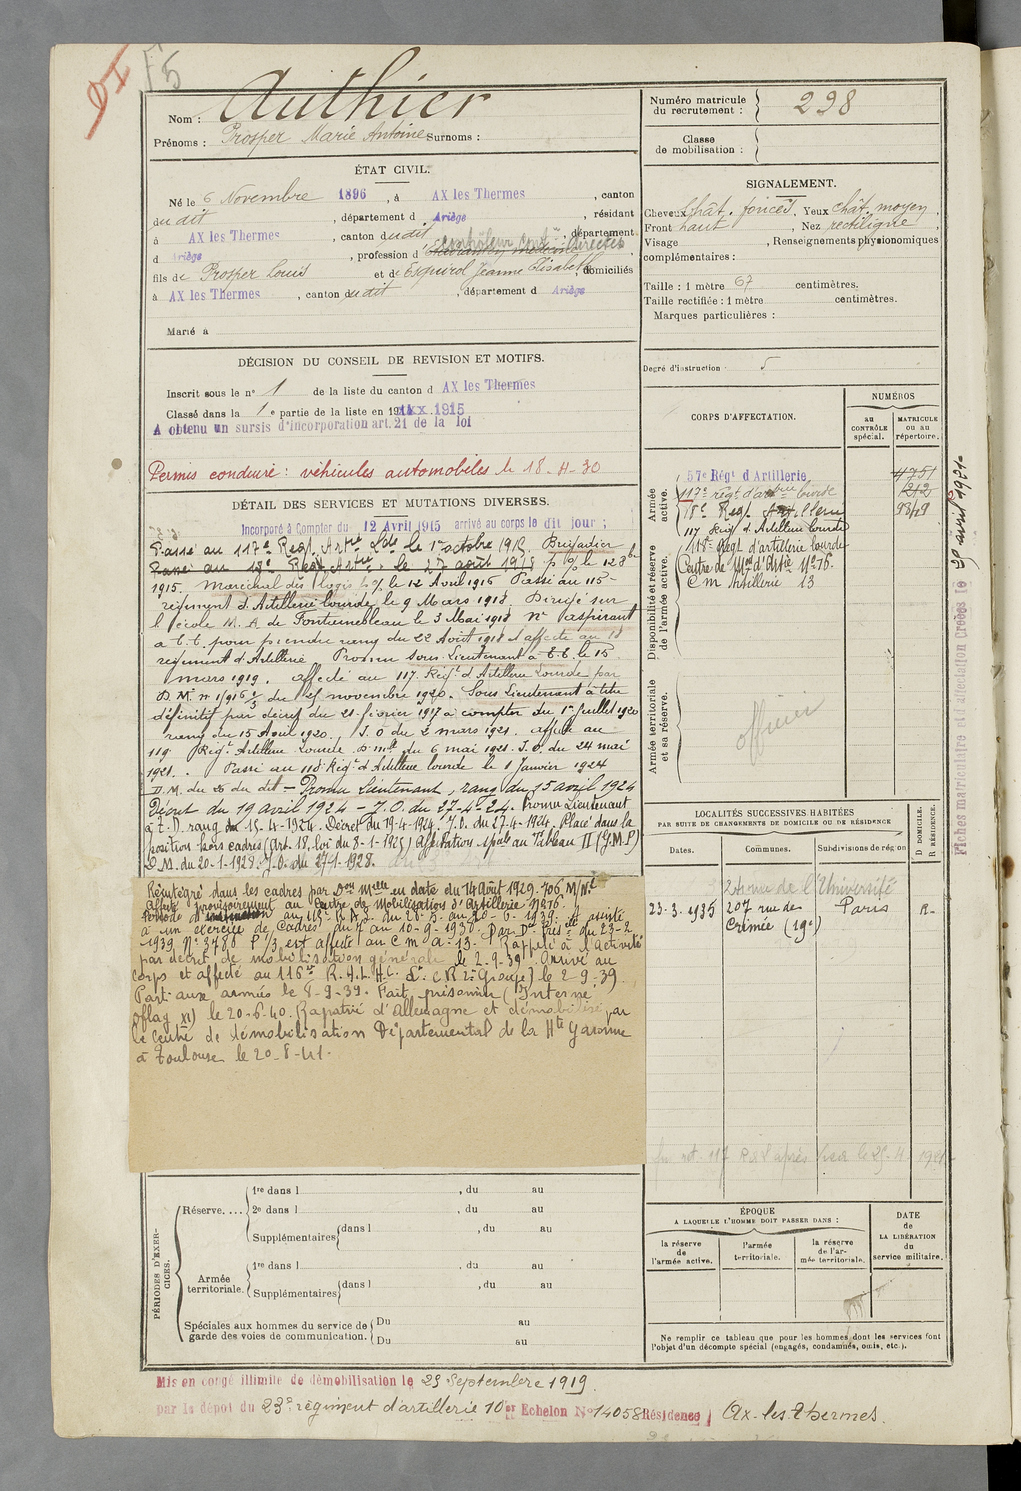 F5
Nom : Authier
Prénoms : Prosper Marie Antoine Surnoms :
Numéro matricule du recrutement : 298
Classe de mobilisation :
ÉTAT CIVIL.
Né le 6 Novembre 1896, à AX les Thermes, canton
du dit, département d Ariège, résidant
à AX les Thermes, canton dudit, département
d Ariège, profession d contrôleur cont. directes
fils de Prosper Louis et de Esquirol Jeanne Elisabeth, domiciliés
à AX les Thermes, canton dudit, département d Ariège
Marié à
SIGNALEMENT.
Cheveux chât. foncés. Yeux chât. moyen,
Front haut, Nez rectiligne,
Visage, Renseignements physionomiques
complémentaires :
Taille : 1 mètre 67 centimètres.
Taille rectifiée : 1 mètre centimètres.
Marques particulières :
Degré d'instruction 5
DÉCISION DU CONSEIL DE REVISION ET MOTIFS.
Inscrit sous le n° 1 de la liste du canton d AX les Thermes
Classé dans la 1e partie de la liste en 1915
A obtenu un sursis d'incorporation art. 21 de la loi
Permis conduire : véhicules automobiles le 18-11-30
DÉTAIL DES SERVICES ET MUTATIONS DIVERSES.
Incorporé à Compter du 12 Avril 1915 arrivé au corps le dit jour ;
Passé au 117e Regt Artrie Lde le 1er octobre 1915. Brigadier
Passé au 18e Regt Artie le 27 août 1915
1915. Maréchal des Logis le 12 Avril 1916 Passé au 115
régiment d'Artillerie lourde le 9 Mars 1918 Dirigé sur
l'école M. A de Fontainebleau le 3 Mai 1918 Né aspirant
à t.t. pour prendre rang du 22 Août 1918 affecté au 18
régiment d'Artillerie Promu sous Lieutenant à t.t. le 15
mars 1919. affecté au 117 Régt d'Artillerie Lourde par
D.M. n° du 25 novembre 1920. Sous Lieutenant à titre
définitif par décret du 21 février 1917 à compter du 1er Juillet 1920
rang du 15 Avril 1920. J.O du 2 mars 1921. affecté au
119 Régt Artillerie Lourde D mlle du 6 mai 1921 J.O. du 24 mai
1921. Passé au 118 Régt d'Artillerie lourde le 1 Janvier 1924
D.M. du 26 du dit – Promu Lieutenant, rang du 15 avril 1924
Décret du 19 avril 1924 – J.O. du 27-4-24. Promu Lieutenant
à t. D. rang du 15-4-1924. Décret du 19-4-1924. J.O. du 27-4-1924. Placé dans la
position hors cadres (art. 18, loi du 8-1-1925) Affectation spale au Tableau II (G.M.P)
D.M. du 20-1-1928 J.O. du 27-1-1928.
Réintégré dans les cadres par Don Mlle en date du 14 Août 1929. 706 M/N.
Affecté provisoirement au Centre de Mobilisation d'Artillerie N°276.
Période d'instruction au 118e R.A.L. du 26-5- au 20-6-1939. A assisté
à un exercice de Cadres du 7 au 10-9-1930. Par Dn Présle du 23-2
1939 N° 3788 P 1/3 est affecté au C m a 13. Rappelé à l'Activité
par décret de mobilisation générale le 2.9.39. Arrivé au
corps et affecté au 116e R.A.L.H.C. le 2.9.39.
Parti aux armées le 8-9-39. Fait prisonnier (Interné
oflag XI) le 20-6-40. Rapatrié d'Allemagne et démobilisé par
le Centre de démobilisation Départemental de la Hte Garonne
à Toulouse le 20-8-41.
CORPS D'AFFECTATION.
NUMÉROS
AU CONTRÔLE spécial.
MATRICULE OU AU répertoire.
Armée active.
57e Régt d'Artillerie 4751
117e régt d'artrie lourde 212
18e Regt Artillerie 9849
Disponibilité et réserve de l'armée active.
117 Régt d'Artillerie Lourde
118e Régt d'artillerie lourde
Centre de Mon d'Artie N°276.
C m Artillerie 13
Armée territoriale et sa réserve.
officier
Fiches matriculaire et d'affectation créées le 25 avril 1921
LOCALITÉS SUCCESSIVES HABITÉES
PAR SUITE DE CHANGEMENTS DE DOMICILE OU DE RÉSIDENCE
Dates. Communes. Subdivisions de région D DOMICILE. R RÉSIDENCE.
2 rue de l'Université
23-3-1935 207 rue de Crimée (19e) Paris R-
PÉRIODES D'EXERCICES.
Réserve.... 1re dans l , du au
2e dans l , du au
Supplémentaires dans l , du au
Armée territoriale. 1re dans l , du au
Supplémentaires dans l , du au
Spéciales aux hommes du service de garde des voies de communication. Du au
Du au
ÉPOQUE
A LAQUELLE L'HOMME DOIT PASSER DANS :
la réserve de l'armée active.
l'armée territoriale.
la réserve de l'armée territoriale.
DATE de LA LIBÉRATION du service militaire.
Ne remplir ce tableau que pour les hommes dont les services font
l'objet d'un décompte spécial (engagés, condamnés, omis, etc.).
Mis en congé illimité de démobilisation le 25 Septembre 1919.
par le dépot du 23e régiment d'artillerie 10er Echelon N°14058 Résidence Ax-les-Thermes.